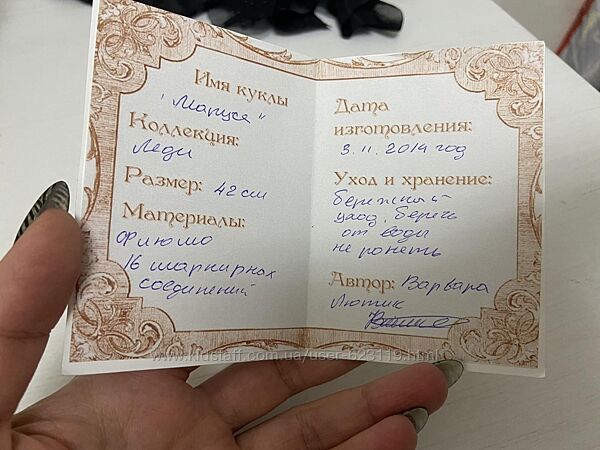 Имя куклы
"Маруся"
Коллекция:
Леди
Размер: 42 см
Материалы:
Фимо
16 шарнирных
соединений
Дата
изготовления:
3. 11. 2014 год
Уход и хранение:
бережный
уход, беречь
от воды
не ронять
Автор: Варвара
Лютик
www.kidstaff.com.ua/user-623119.html